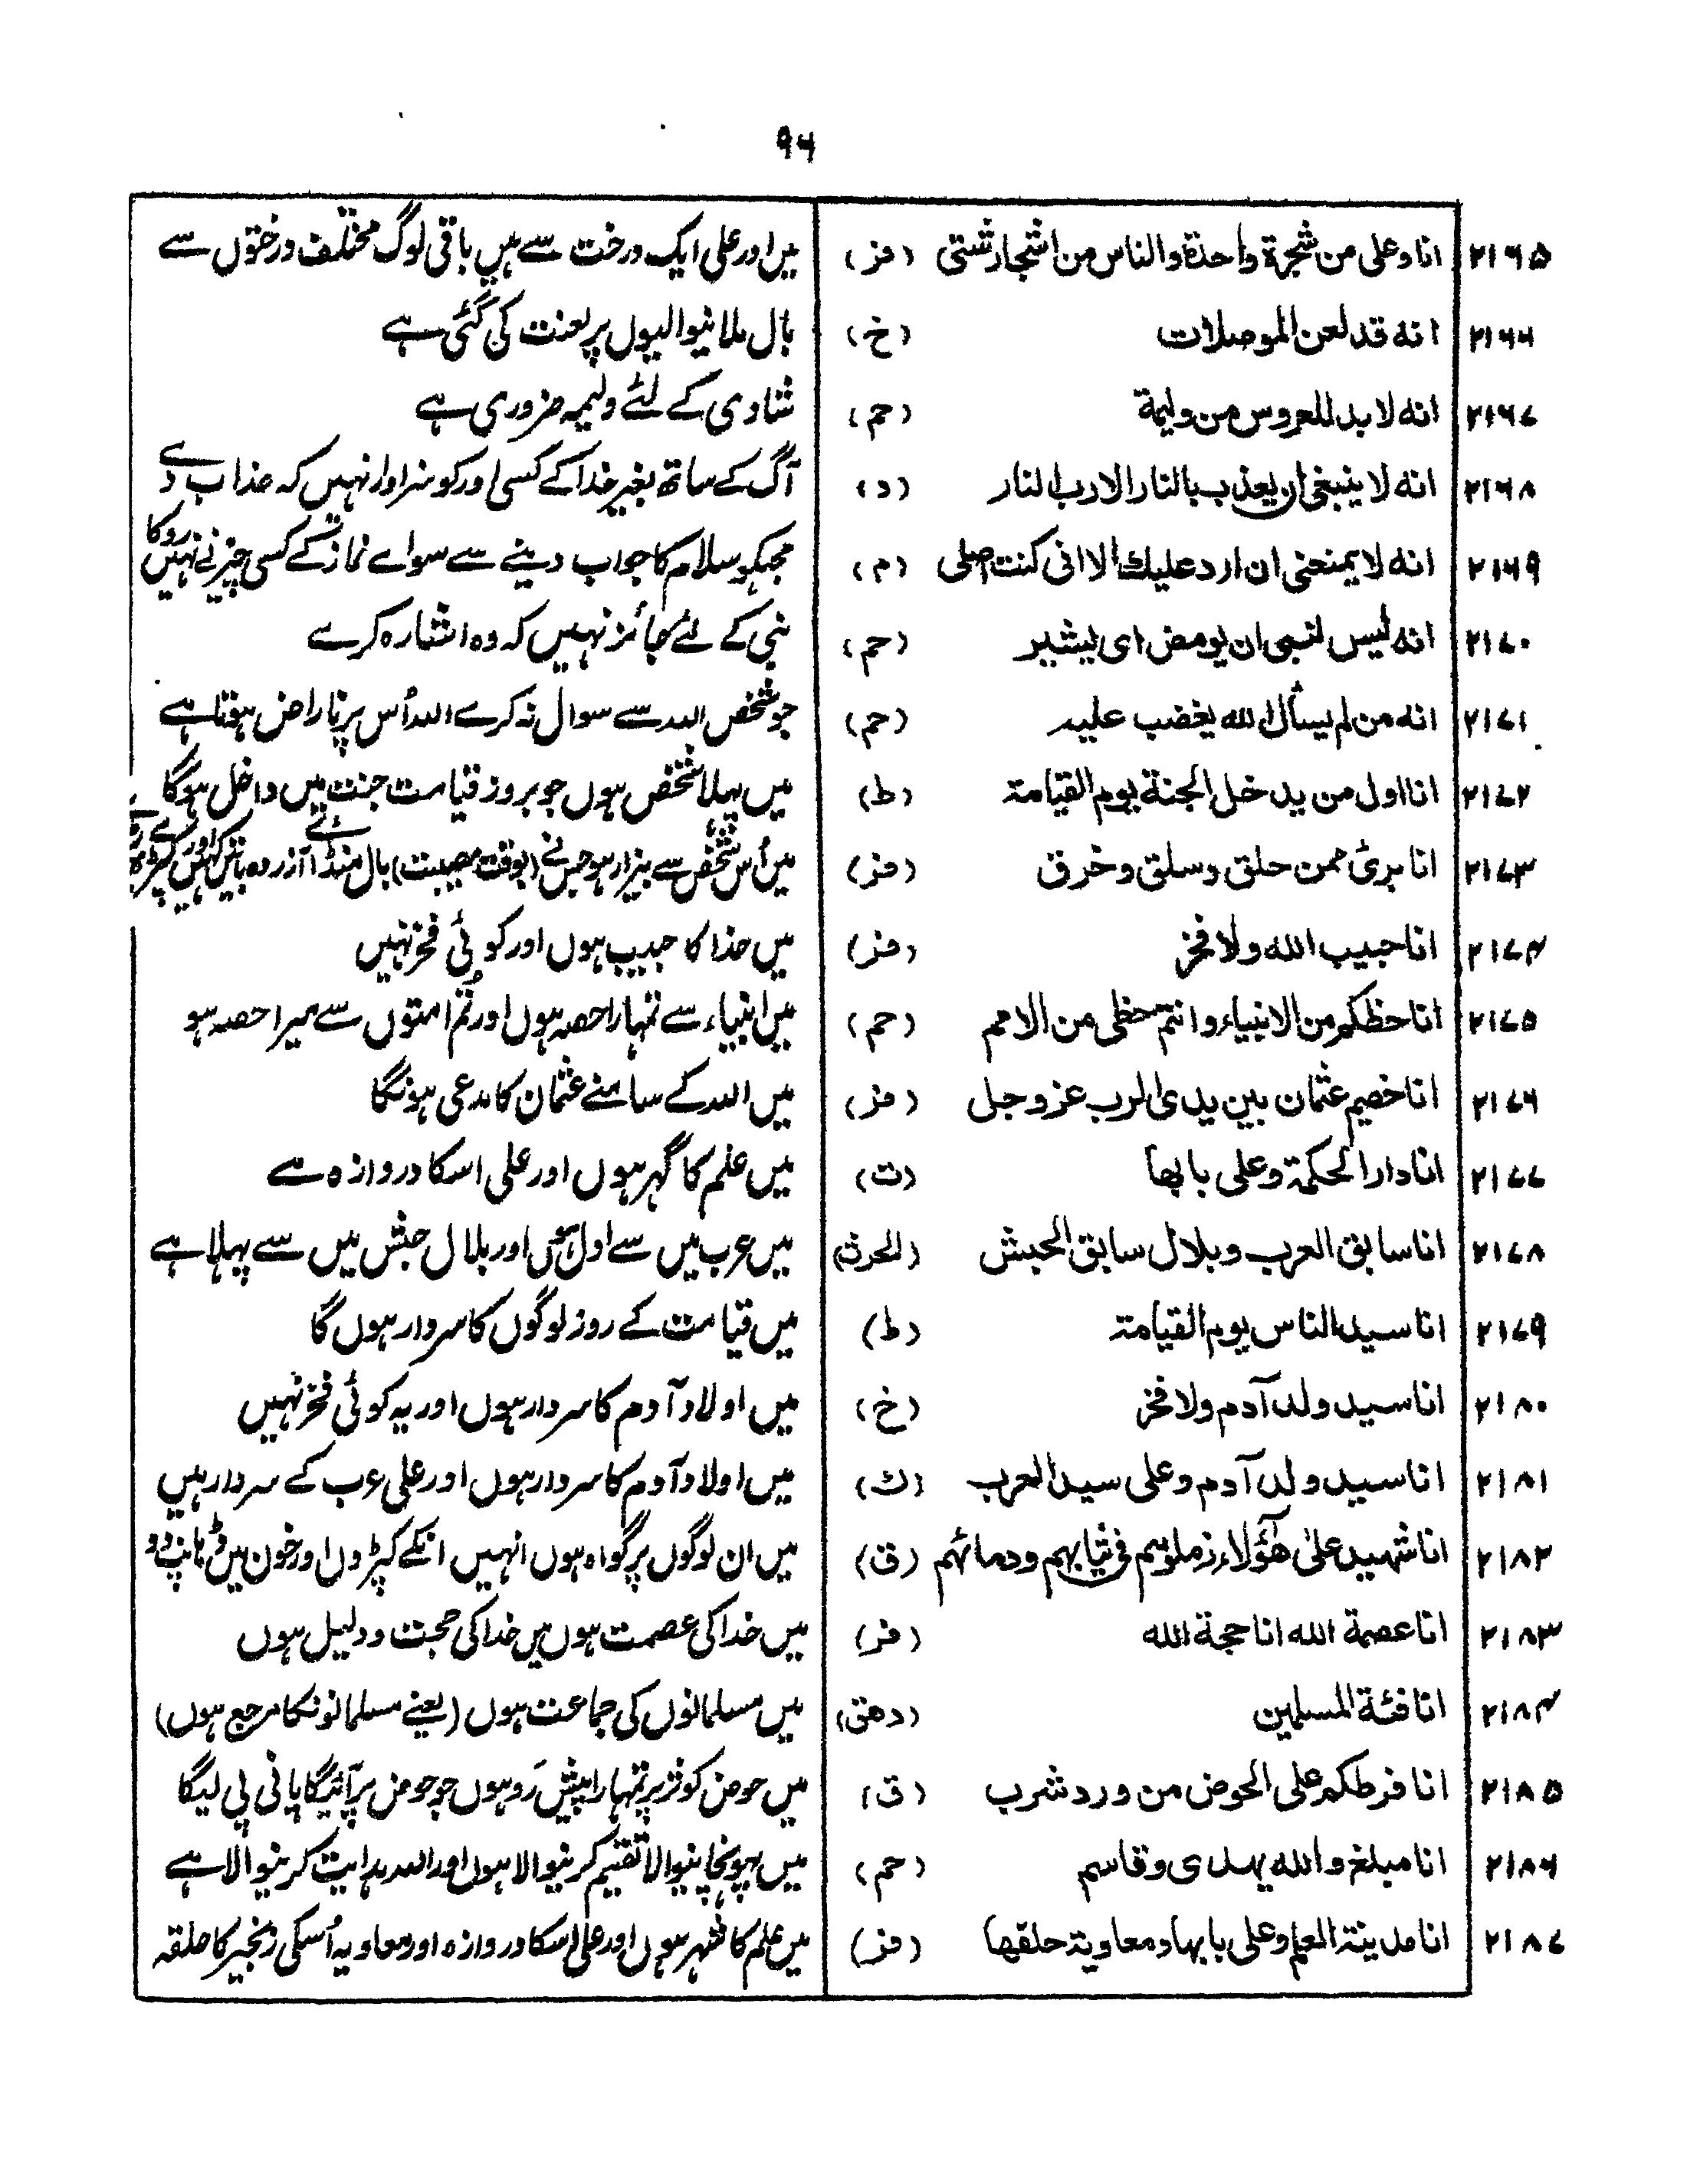 ۹۶
۲۱۶۵ انا وعلی من شجرۃ واحدۃ والناس من اشجار شتی (فز) میں اور علی ایک درخت سے ہیں باقی لوگ مختلف درختوں سے
۲۱۶۶ انہ قد لعن الموصلات (خ) بال ملانیوالیوں پر لعنت کی گئی ہے
۲۱۶۷ انہ لا بد للعروس من ولیمۃ (حم) شادی کے لئے ولیمہ ضروری ہے
۲۱۶۸ انہ لا ینبغی ان یعذب بالنار الا رب النار (د) آگ کے ساتھ بغیر خدا کے کسی اور کو سزاوار نہیں کہ عذاب دے
۲۱۶۹ انہ لا یمنعنی ان ارد علیک الا انی کنت اصلی (م) مجہکو سلام کا جواب دینے سے سواے نماز کے کسی چیز نے نہیں روکا
۲۱۷۰ انہ لیس لنبی ان یومض ای یشیر (حم) نبی کے لئے جائز نہیں کہ وہ اشارہ کرے
۲۱۷۱ انہ من لم یسأل اللہ یغضب علیہ (حم) جو شخص اللہ سے سوال نہ کرے اللہ اُس پر ناراض ہوتا ہے
۲۱۷۲ انا اول من یدخل الجنۃ یوم القیامۃ (ط) میں پہلا شخص ہوں جو بروز قیامت جنت میں داخل ہوگا
۲۱۷۳ انا بریٔ ممن حلق وسلق وخرق (فز) میں اُس شخص سے بیزار ہو جس نے (بوقت مصیبت) بال منڈائے آزردہ باتیں کہیں اور کپڑے
۲۱۷۴ انا حبیب اللہ ولا فخر (فز) میں خدا کا حبیب ہوں اور کوئی فخر نہیں
۲۱۷۵ انا حظکم من الانبیاء وانتم حظی من الامم (حم) میں انبیاء سے تمہارا حصہ ہوں اور تُم امتوں سے میرا حصہ ہو
۲۱۷۶ انا خصیم عثمان بین یدی الرب عز وجل (فز) میں اللہ کے سامنے عثمان کا مدعی ہونگا
۲۱۷۷ انا دار الحکمۃ وعلی بابھا (ت) میں علم کا گہر ہوں اور علی اسکا دروازہ ہے
۲۱۷۸ انا سابق العرب وبلال سابق الحبش (الحرث) میں عرب میں سے اول ہوں اور بلال حبش میں سے پہلا ہے
۲۱۷۹ انا سید الناس یوم القیامۃ (ط) میں قیامت کے روز لوگوں کا سردار ہوں گا
۲۱۸۰ انا سید ولد آدم ولا فخر (خ) میں اولاد آدم کا سردار ہوں اور یہ کوئی فخر نہیں
۲۱۸۱ انا سید ولد آدم وعلی سید العرب (ک) میں اولاد آدم کا سردار ہوں اور علی عرب کے سردار ہیں
۲۱۸۲ انا شہید علیٰ ھؤلاء زملوہم فی ثیابہم ودمائہم (ق) میں ان لوگوں پر گواہ ہوں انہیں انکے کپڑوں اور خون میں ڈہانپ دو
۲۱۸۳ انا عصمۃ اللہ انا حجۃ اللہ (فر) میں خدا کی عصمت ہوں میں خدا کی حجت ودلیل ہوں
۲۱۸۴ انا فئۃ المسلمین (دھق) میں مسلمانوں کی جماعت ہوں (یعنے مسلمانونکا مرجع ہوں)
۲۱۸۵ انا فرطکم علی الحوض من ورد شرب (ق) میں حوض کوثر پر تمہارا پیش رَو ہوں جو حوض پر آئیگا پانی پی لیگا
۲۱۸۶ انا مبلغ واللہ یہدی وقاسم (حم) میں پہونچانیوالا تقسیم کرنیوالا ہوں اور اللہ ہدایت کرنیوالا ہے
۲۱۸۷ انا مدینۃ العلم وعلی بابہا ومعاویۃ حلقھا (فز) میں علم کا شہر ہوں اور علی اسکا دروازہ اور معاویہ اُسکی زنجیر کا حلقہ